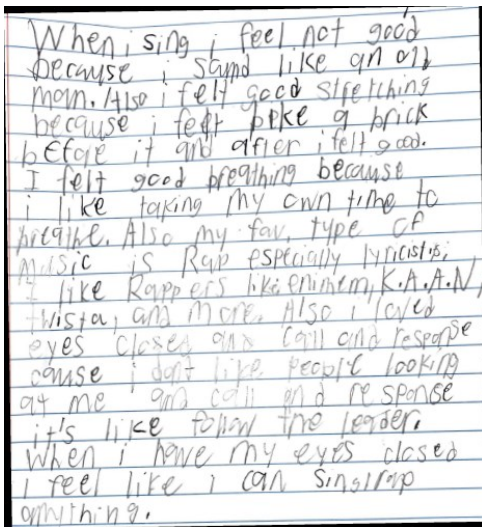 When i sing i feel not good
because i sound like an old
man. Also i felt good stretching
because i felt like a brick
before it and after i felt good.
I felt good breathing because
i like taking my own time to
breathe. Also my fav. type of
Music is Rap especially lyricists,
I like Rappers like eninem, K.A.A.N,
twista, and more. Also i loved
eyes closed and call and response
cause i don't like people looking
at me and call and response
it's like follow the leader.
When i have my eyes closed
I feel like i can sing/rap
anything.